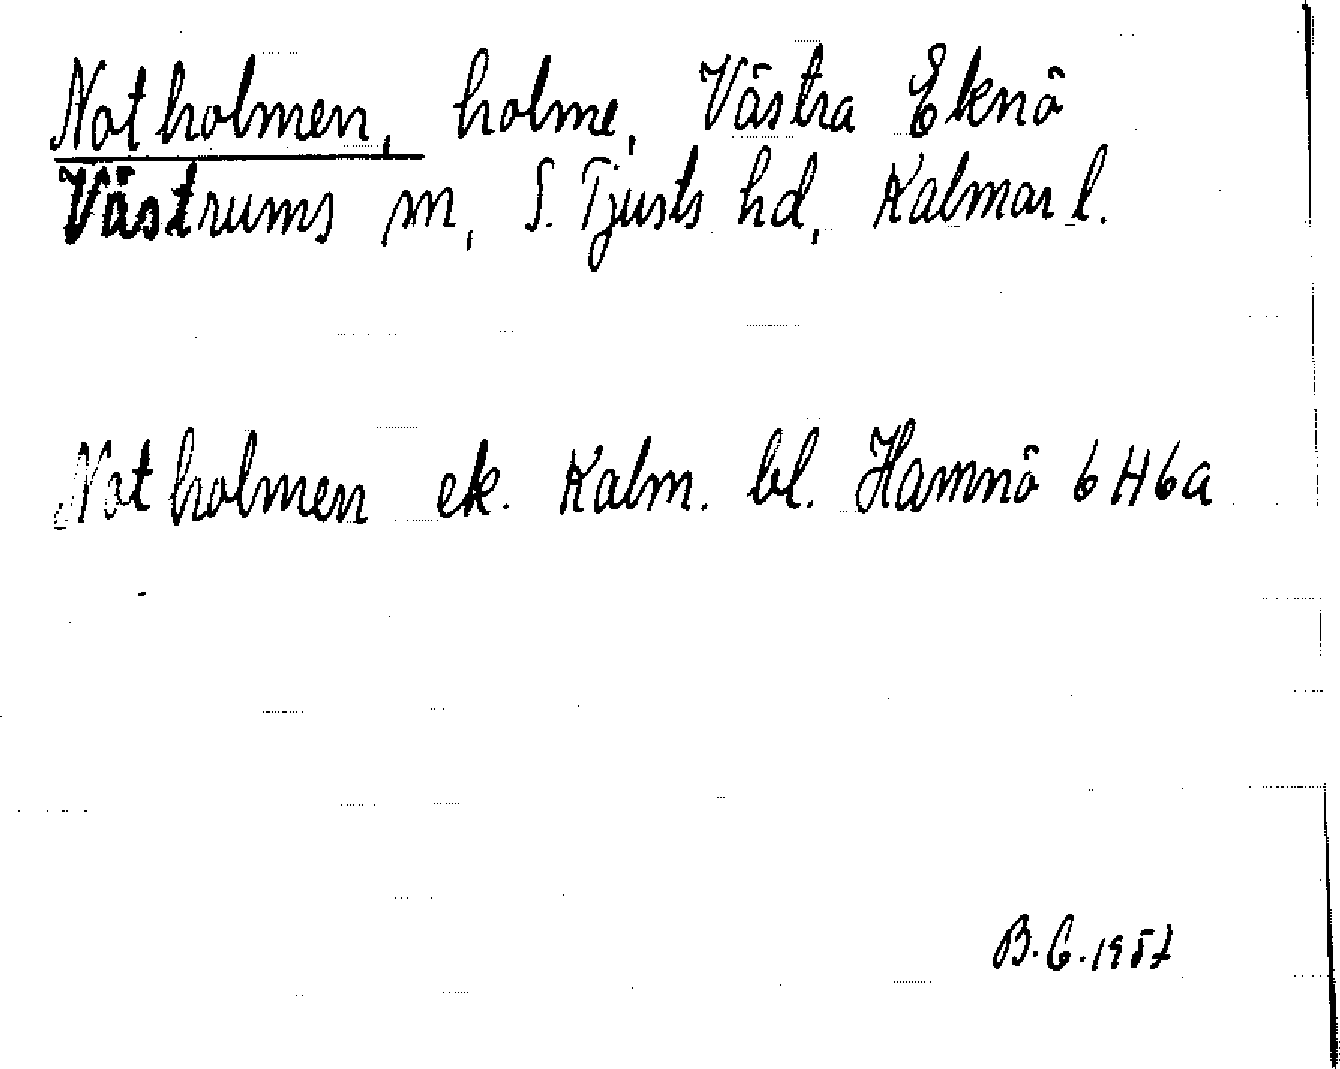 Notholmen, holme, Västra Eknö
Västrums sn, S. Tjusts hd, Kalmar l.
Notholmen ek. Kalm. bl. Hamnö 6 H 6a
B.G. 1957